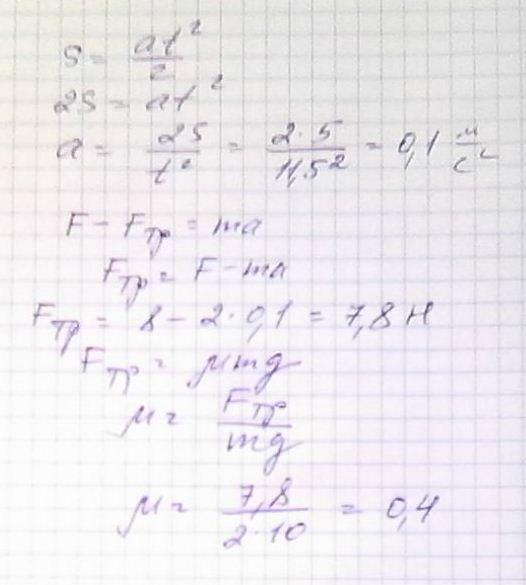 S = at² / 2
2S = at²
a = 2S / t² = 2·5 / 11,5² = 0,1 м/с²
F - Fтр = ma
Fтр = F - ma
Fтр = 8 - 2·0,1 = 7,8 Н
Fтр = μmg
μ = Fтр / mg
μ = 7,8 / 2·10 = 0,4